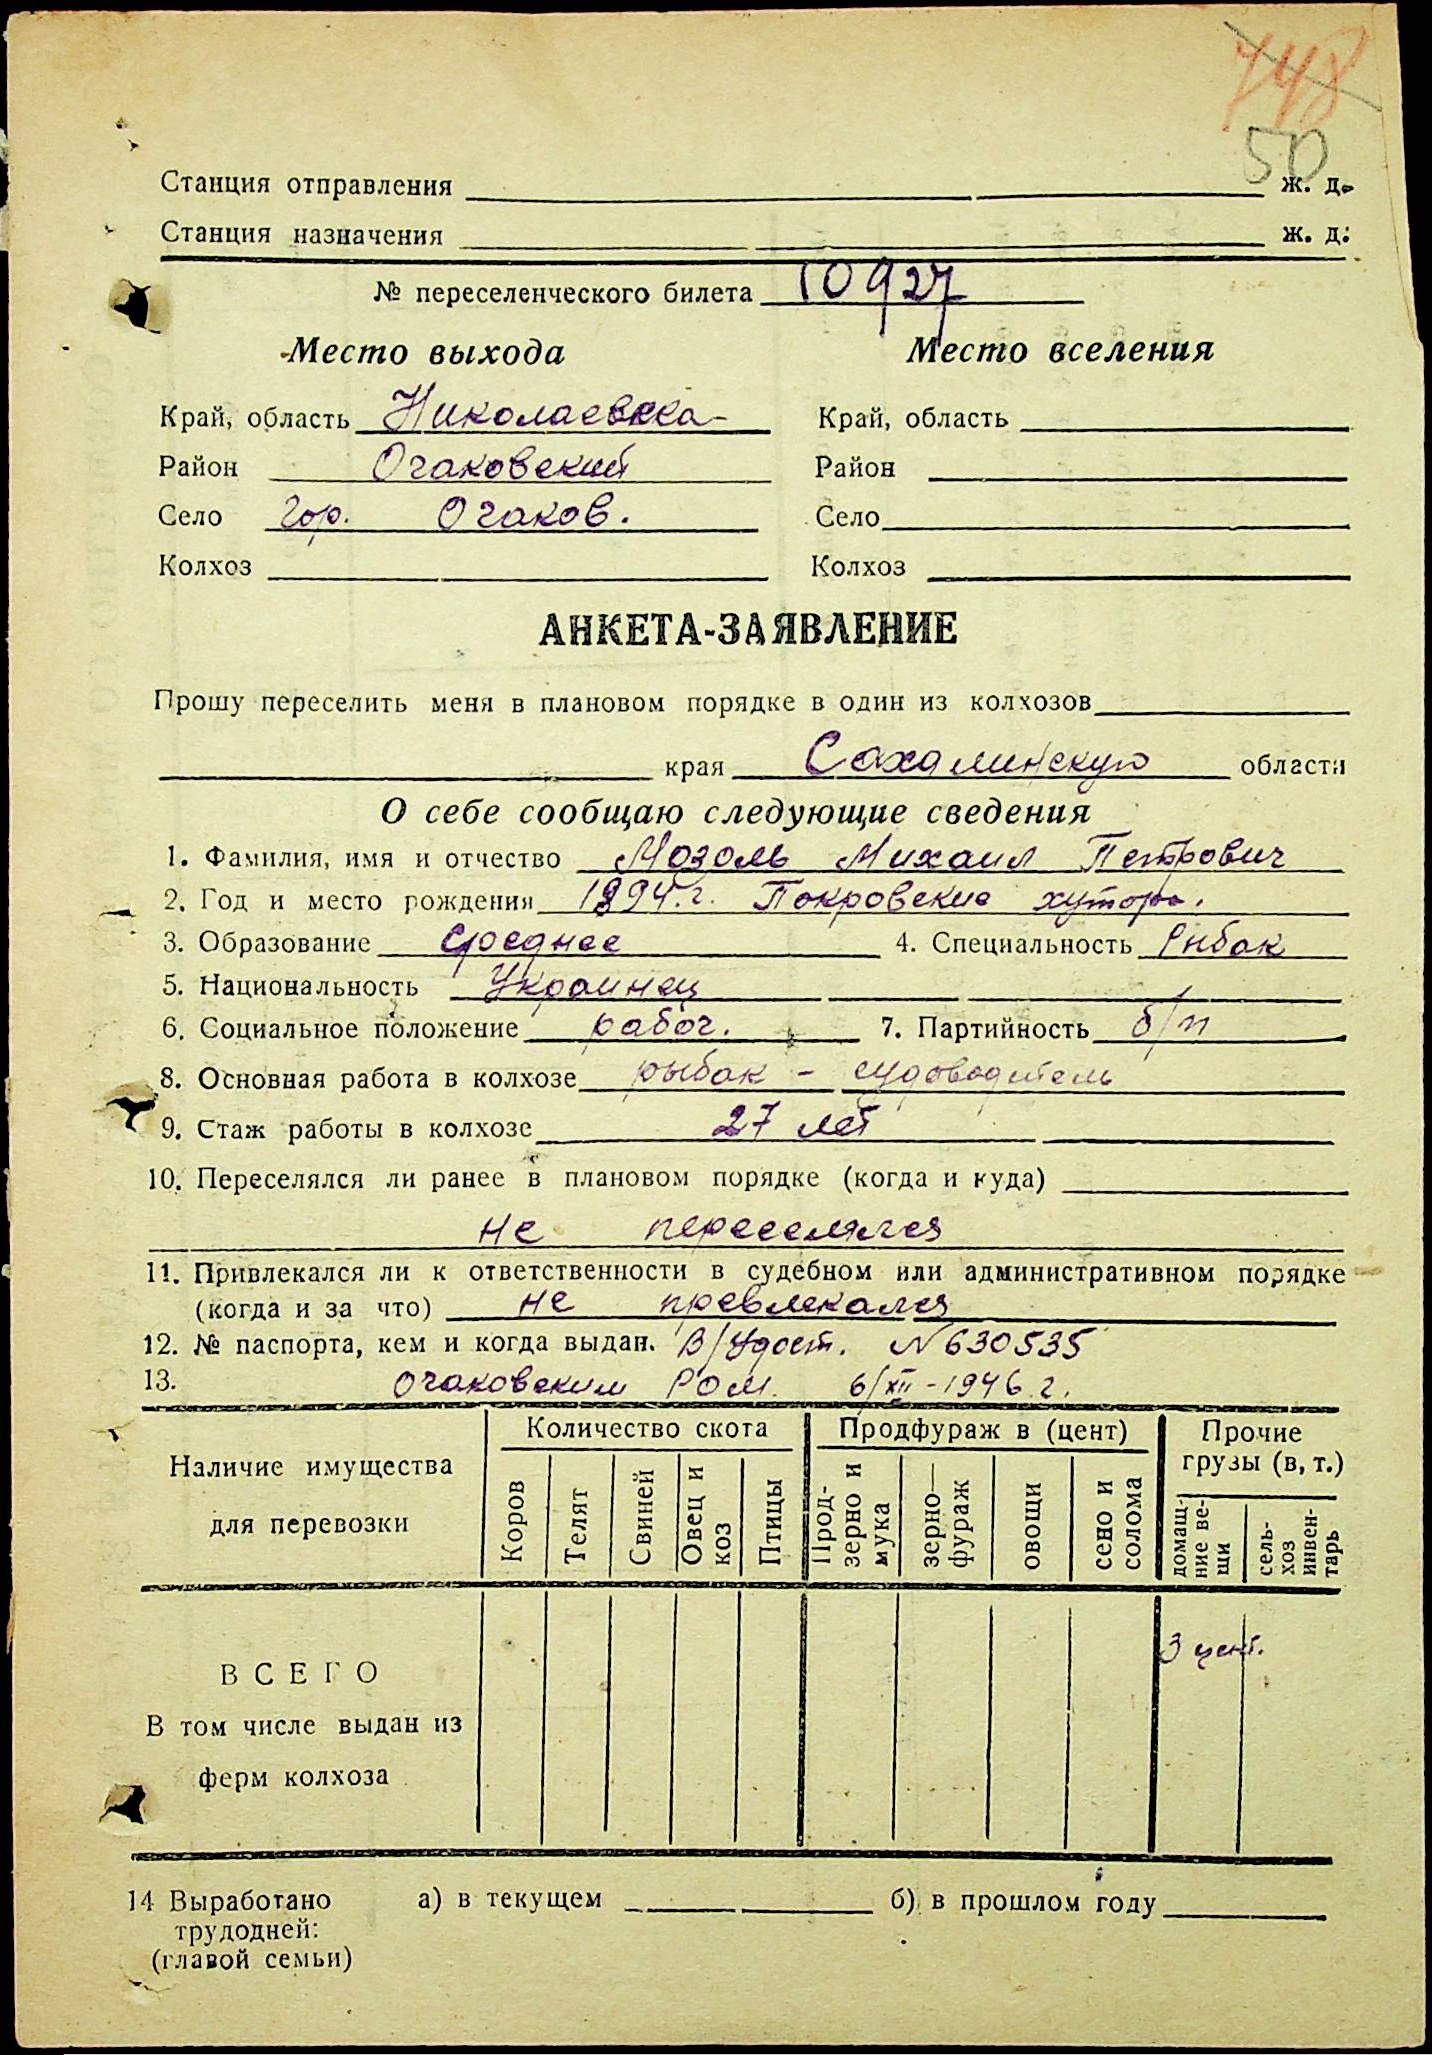 748
50
Станция отправления ж. д.
Станция назначения ж. д.
№ переселенческого билета 10927
Место выхода Место вселения
Край, область Николаевска- Край, область
Район Очаковский Район
Село гор. Очаков. Село
Колхоз Колхоз
АНКЕТА-ЗАЯВЛЕНИЕ
Прошу переселить меня в плановом порядке в один из колхозов
края Сахалинскую области
О себе сообщаю следующие сведения
1. Фамилия, имя и отчество Мозоль Михаил Петрович
2. Год и место рождения 1894.г. Покровские хутора.
3. Образование среднее 4. Специальность Рыбак
5. Национальность Украинец
6. Социальное положение рабоч. 7. Партийность б/п
8. Основная работа в колхозе рыбак - судоводитель
9. Стаж работы в колхозе 27 лет
10. Переселялся ли ранее в плановом порядке (когда и куда)
не переселялся
11. Привлекался ли к ответственности в судебном или административном порядке
(когда и за что) не превлекался
12. № паспорта, кем и когда выдан. В/Удост. N 630535
13. Очаковским РОМ. 6/XII-1946 г.
Наличие имущества для перевозки
Количество скота Продфураж в (цент) Прочие грузы (в, т.)
Коров Телят Свиней Овец и коз Птицы Прод-зерно и мука зерно—фураж овощи сено и солома домащ-ние ве-щи сель-хоз инвен-тарь
3 цент.
ВСЕГО
В том числе выдан из
ферм колхоза
14 Выработано а) в текущем б) в прошлом году
трудодней:
(главой семьи)